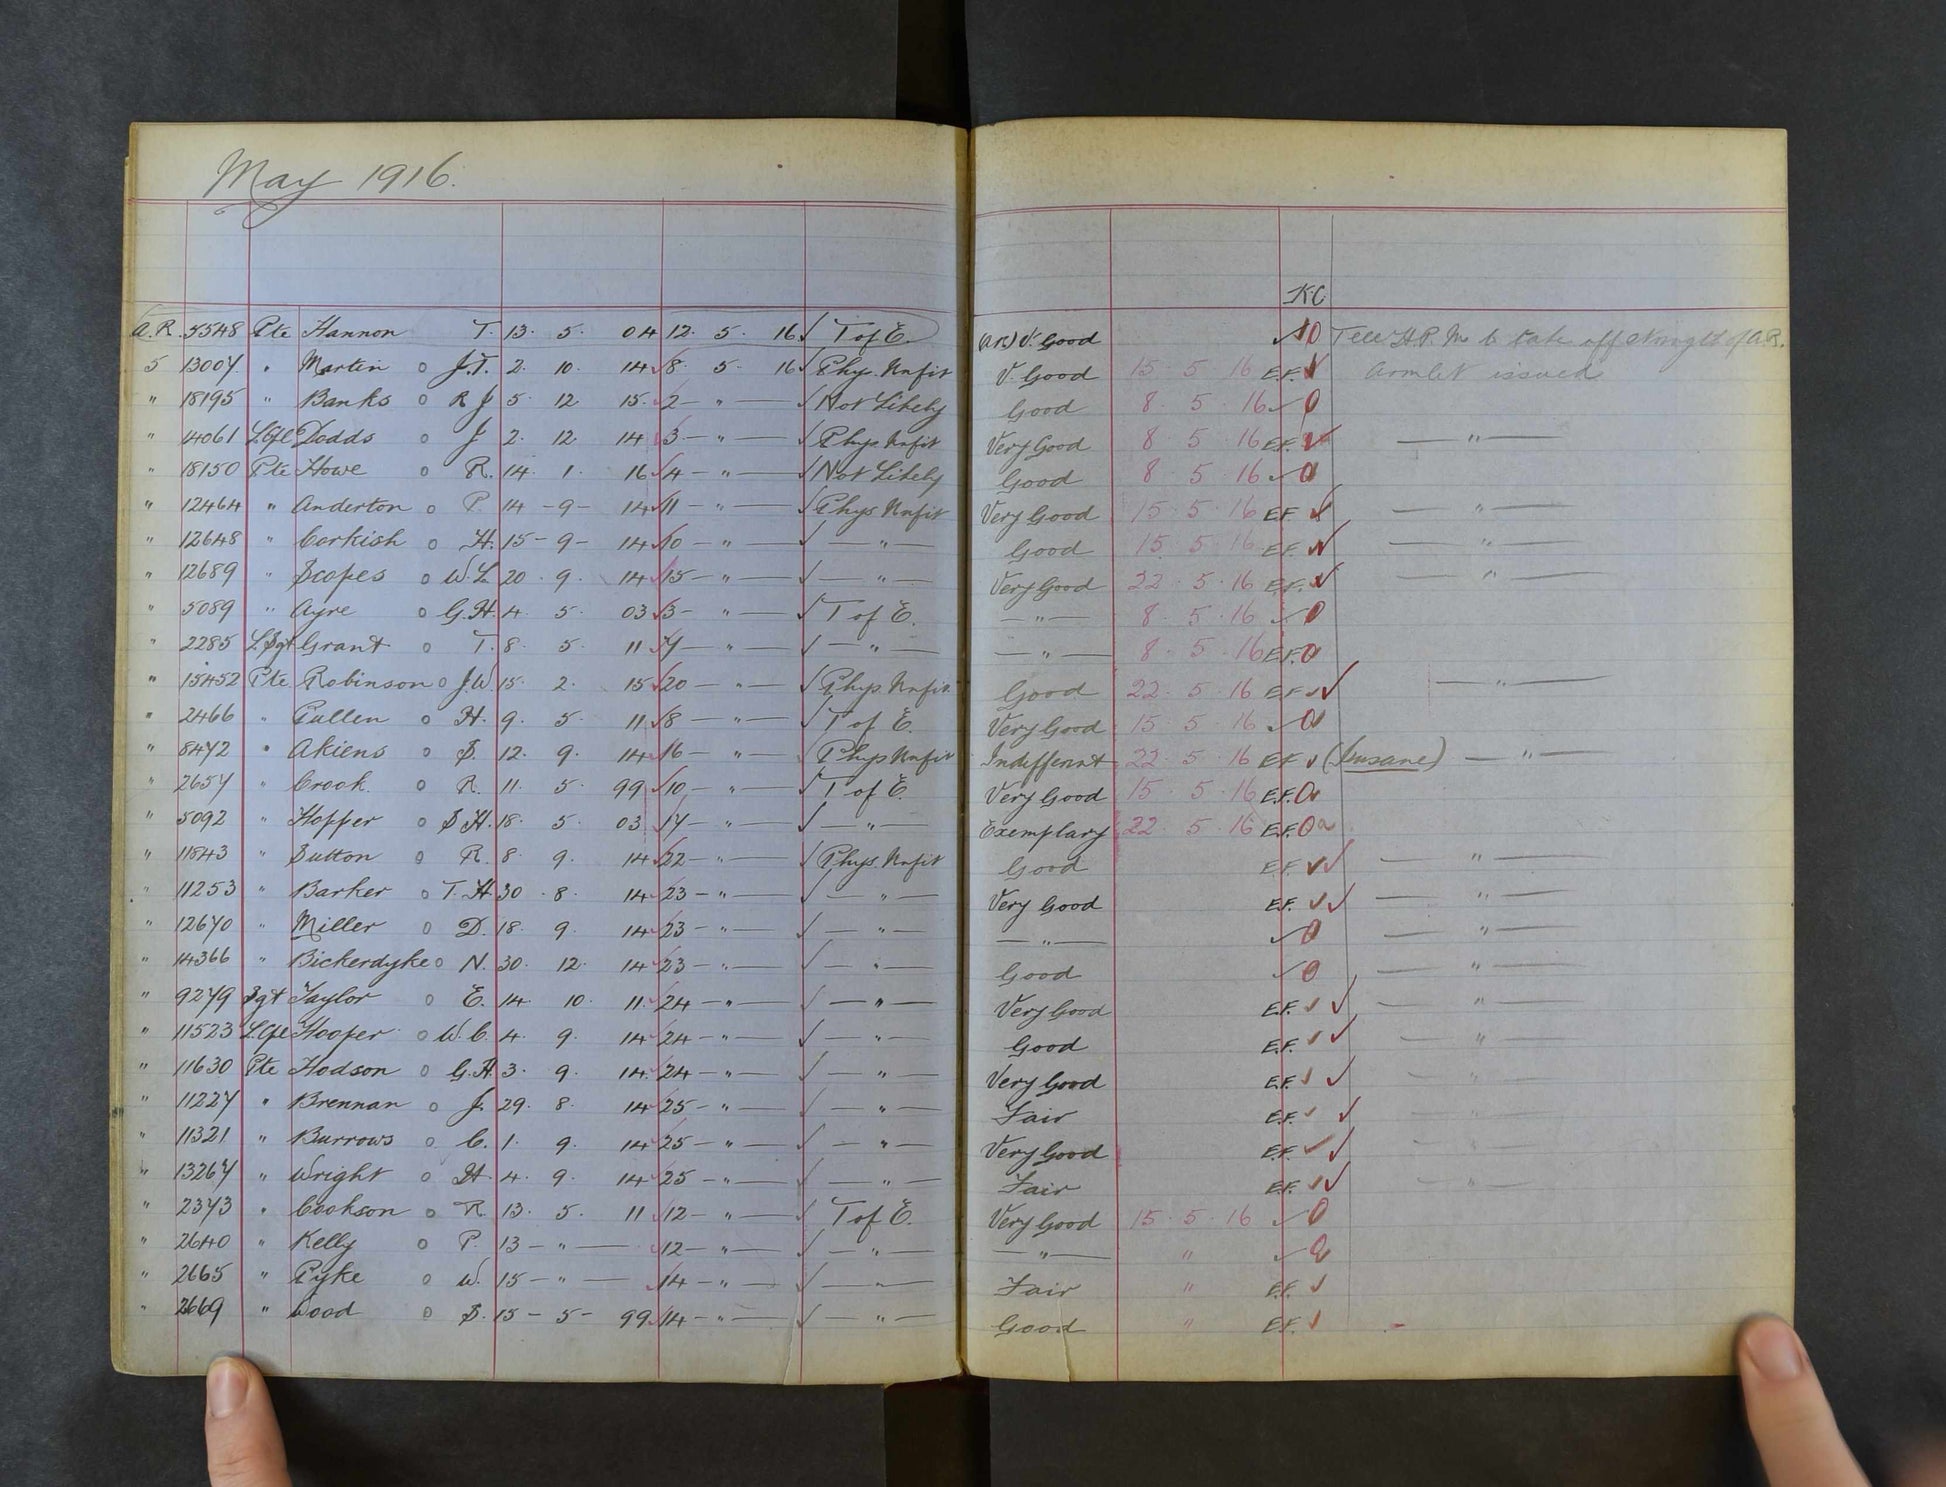 May 1916.
K.C.
A.R. 5548 Pte Hannon T. 13. 5. 04 12. 5. 16 ✓ T of E. (A.R.) V. Good ✓ O Tell H.P.M. to take off strength of A.R.
5 13007 " Martin o J.T. 2. 10. 14 ✓ 8. 5. 16 ✓ Phys. Unfit V. Good 15. 5. 16 E.F. ✓ Armlet issued
" 18195 " Banks o R J 5. 12 15. ✓ 2 — " — ✓ Not Likely Good 8. 5. 16 ✓ O
" 14061 L.Cpl Dodds o J 2. 12. 14 ✓ 3 — " — ✓ Phys Unfit Very Good 8. 5. 16 E.F. ✓ — " —
" 18150 Pte Howe o R. 14. 1. 16 ✓ 4 — " — ✓ Not Likely Good 8 5 16 ✓ O
" 12464 " Anderton o P 14 - 9 - 14 ✓ 11 — " — ✓ Phys Unfit Very Good 15. 5. 16 E.F. ✓ — " —
" 12648 " Corkish o H. 15 - 9 - 14 ✓ 10 — " — ✓ — " — Good 15. 5. 16 E.F. ✓ — " —
" 12689 " Scopes o W.L. 20. 9. 14 ✓ 15 — " — ✓ — " — Very Good 22. 5. 16 E.F. ✓ — " —
" 5089 " Ayre o G.H. 4. 5. 03 ✓ 3 — " — ✓ T of E. — " — 8. 5. 16 ✓ O
" 2285 L.Sgt Grant o T. 8. 5. 11 ✓ 7 — " — ✓ — " — — " — 8. 5. 16 E.F. O
" 15452 Pte Robinson o J.W. 15. 2. 15 ✓ 20 — " — ✓ Phys Unfit Good 22. 5. 16 E.F. ✓ ✓ — " —
" 2466 " Pullen o H. 9. 5. 11 ✓ 8 — " — ✓ T of E. Very Good 15. 5. 16 ✓ O
" 8472 " Akiens o S. 12. 9. 14 ✓ 16 — " — ✓ Phys Unfit Indifferent 22. 5. 16 E.F. ✓ (Insane) — " —
" 2657 " Crook. o R. 11. 5. 99 ✓ 10 — " — ✓ T of E. Very Good 15. 5. 16 E.F. O
" 5092 " Hopper o S H. 18. 5. 03 ✓ 17 — " — ✓ — " — Exemplary 22. 5. 16 E.F. O
" 11843 " Sutton o R. 8. 9. 14 ✓ 22 — " — ✓ Phys. Unfit Good E.F. ✓ ✓ — " —
" 11253 " Barker o T. H. 30. 8. 14 ✓ 23 — " — ✓ — " — Very Good E.F. ✓ ✓ — " —
" 12670 " Miller o D. 18. 9. 14 ✓ 23 — " — ✓ — " — — " — ✓ O — " —
" 14366 " Bickerdyke o N. 30. 12. 14 ✓ 23 — " — ✓ — " — Good ✓ O — " —
" 9279 Sgt Taylor o E. 14. 10. 11. ✓ 24 — " — ✓ — " — Very Good E.F. ✓ ✓ — " —
" 11523 L.Cpl Hooper o W. C. 4. 9. 14 ✓ 24 — " — ✓ — " — Good E.F. ✓ ✓ — " —
" 11630 Pte Hodson o G.H. 3. 9. 14 ✓ 24 — " — ✓ — " — Very Good E.F. ✓ ✓ — " —
" 11227 " Brennan o J. 29. 8. 14 ✓ 25 — " — ✓ — " — Fair E.F. ✓ ✓ — " —
" 11321 " Burrows o C. 1. 9. 14 ✓ 25 — " — ✓ — " — Very Good E.F. ✓ ✓ — " —
" 13267 " Wright o H. 4. 9. 14 ✓ 25 — " — ✓ — " — Fair E.F. ✓ ✓ — " —
" 2373 " Cookson o R. 13. 5. 11 ✓ 12 — " — ✓ T of E. Very Good 15. 5. 16 ✓ O
" 2640 " Kelly o P. 13 — " — ✓ 12 — " — ✓ — " — — " — " ✓
" 2665 " Pyke o W. 15 — " — ✓ 14 — " — ✓ — " — Fair " E.F. ✓
" 2669 " Wood o S. 15 - 5 - 99 ✓ 14 — " — ✓ — " — Good " E.F. ✓